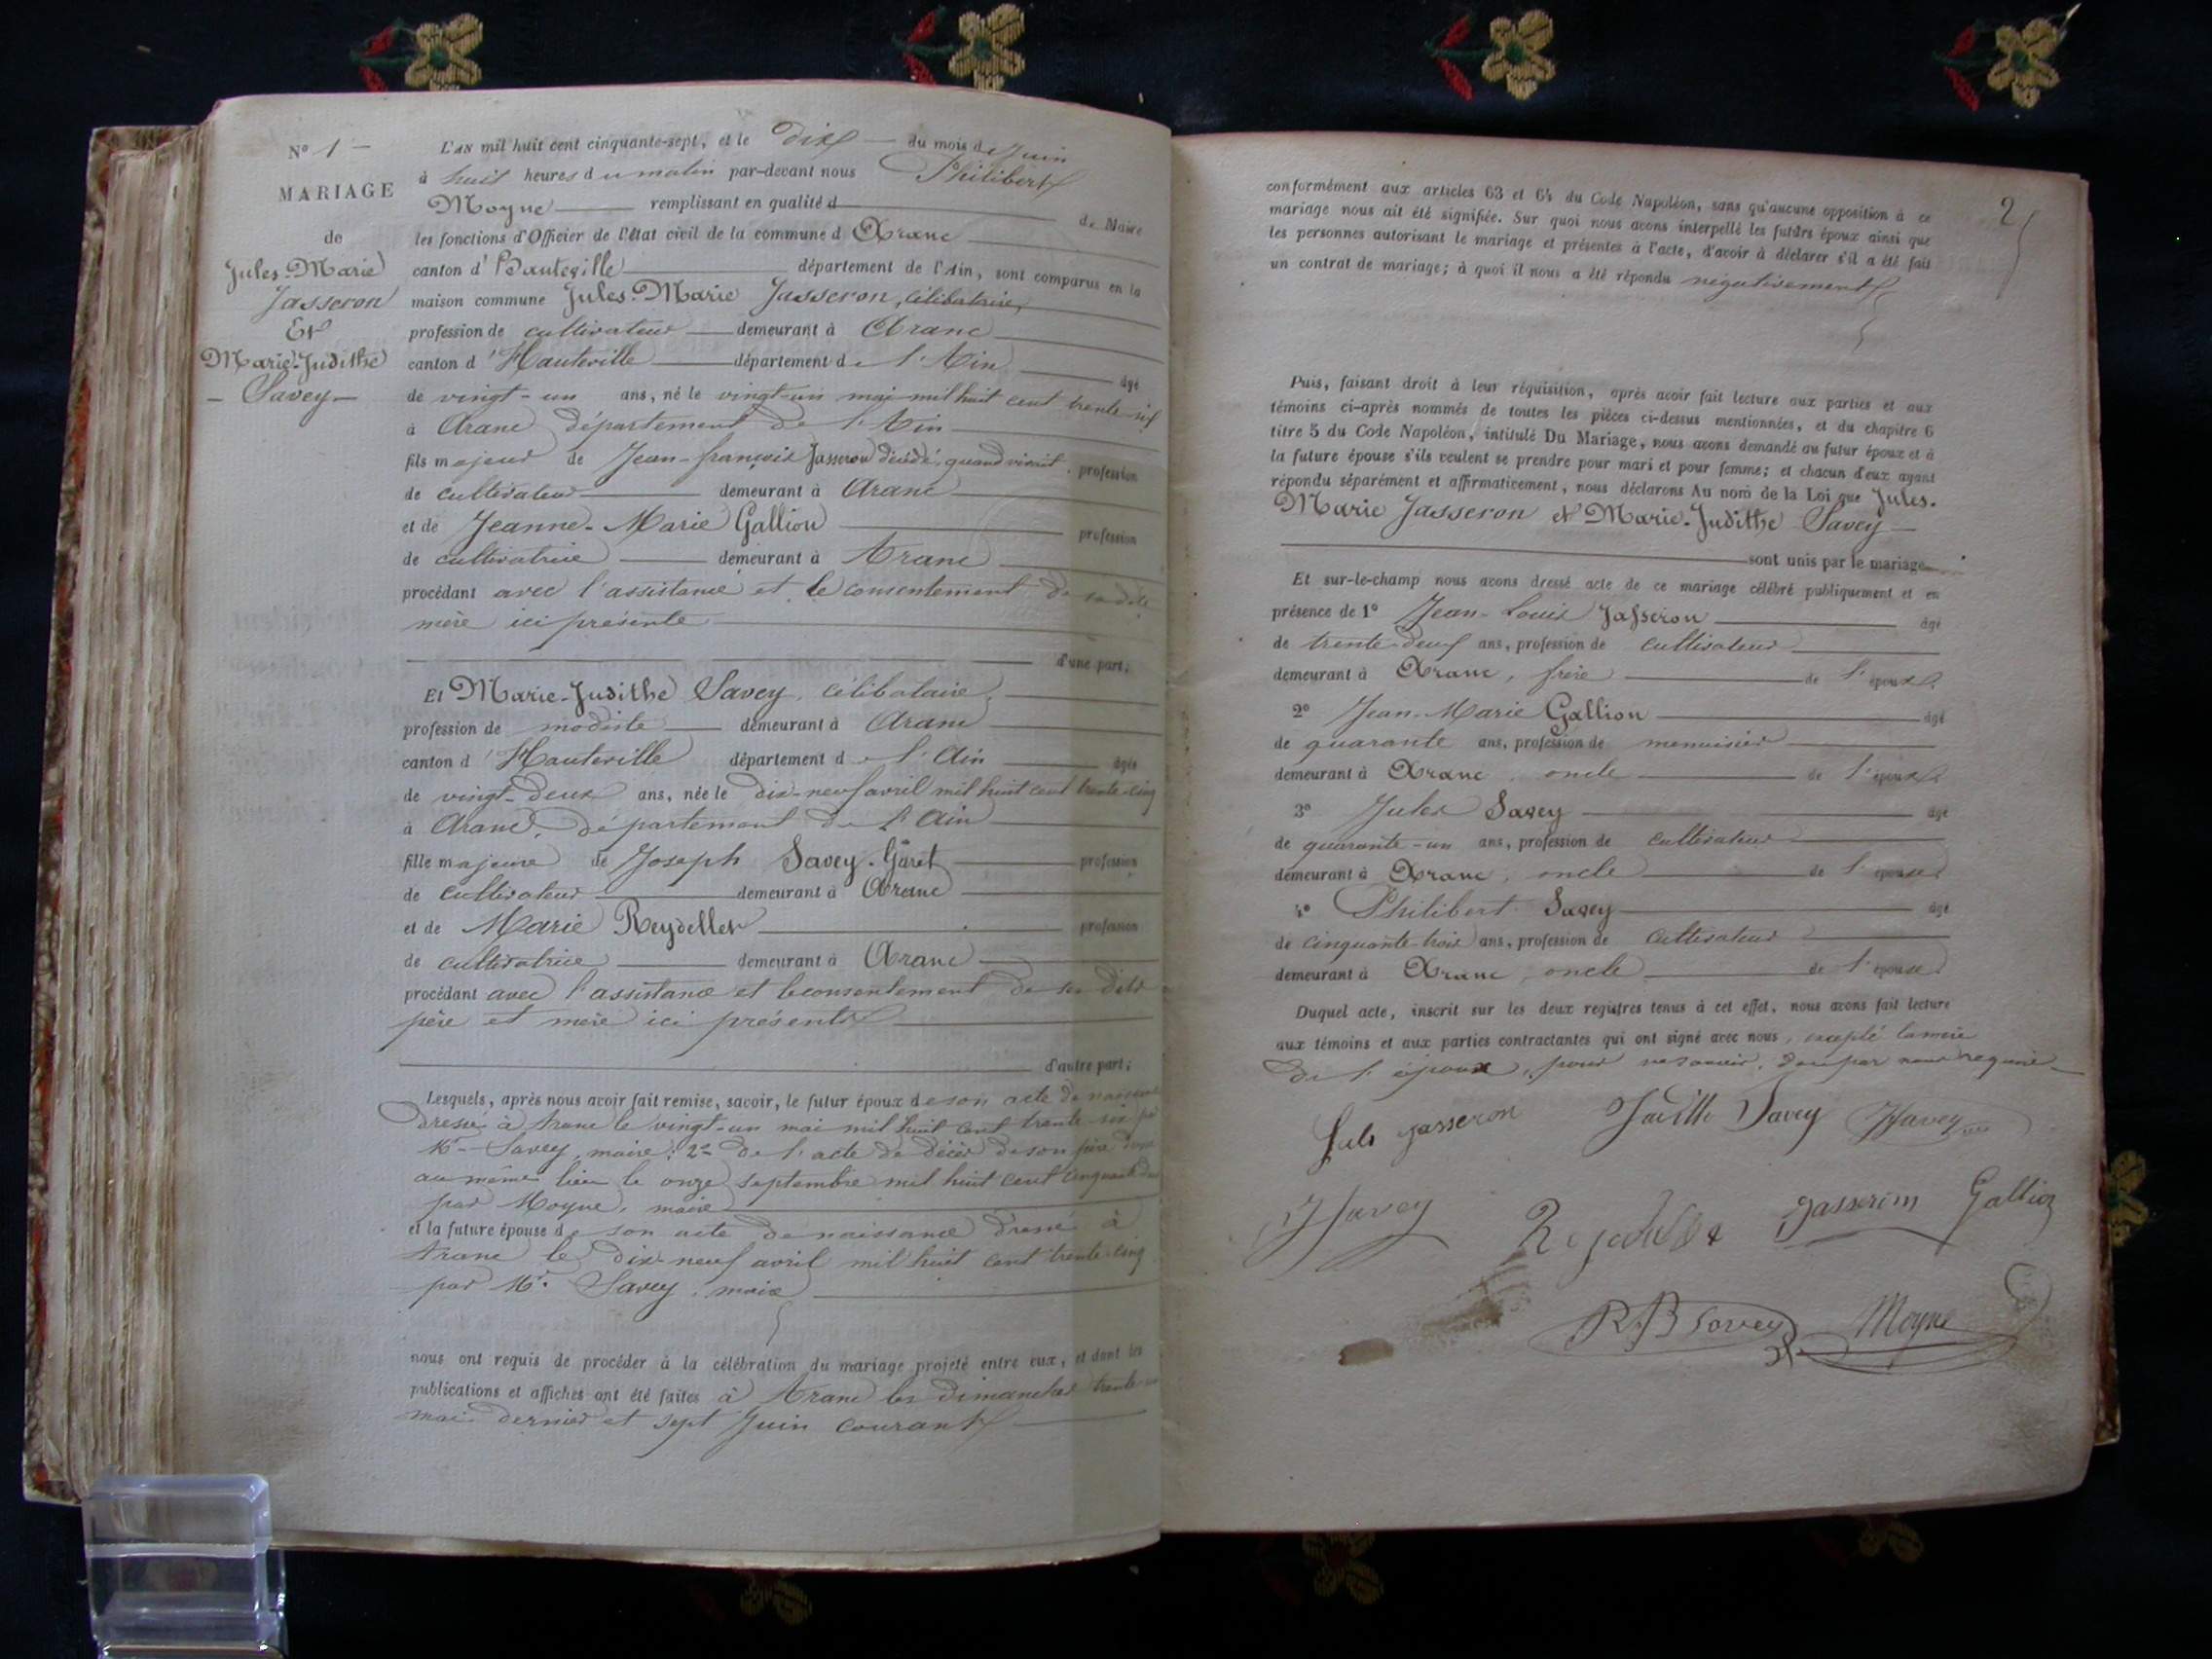 N° 1
MARIAGE
de
Jules-Marie
Jasseron
Et
Marie-Judithe
Savey
L'AN mil huit cent cinquante-sept, et le dix du mois de Juin
à huit heures du matin par-devant nous Philibert
Moyne remplissant en qualité d de Maire
les fonctions d'Officier de l'état civil de la commune d'Aranc
canton d'Hauteville département de l'Ain, sont comparus en la
maison commune Jules-Marie Jasseron, célibataire,
profession de cultivateur demeurant à Aranc
canton d'Hauteville département de l'Ain âgé
de vingt-un ans, né le vingt-un mai mil huit cent trente-six
à Aranc département de l'Ain
fils majeur de Jean-françois Jasseron décédé, quand vivait profession
de cultivateur demeurant à Aranc
et de Jeanne-Marie Gallion profession
de cultivatrice demeurant à Aranc
procédant avec l'assistance et le consentement de sa dite
mère ici présente
d'une part;
Et Marie-Judithe Savey, célibataire,
profession de modiste demeurant à Aranc
canton d'Hauteville département de l'Ain âgée
de vingt-deux ans, née le dix-neuf avril mil huit cent trente-cinq
à Aranc, département de l'Ain
fille majeure de Joseph Savey-Garet profession
de cultivateur demeurant à Aranc
et de Marie Reydellet profession
de cultivatrice demeurant à Aranc
procédant avec l'assistance et le consentement de ses dits
père et mère ici présents
d'autre part;
Lesquels, après nous avoir fait remise, savoir, le futur époux de son acte de naissance
dressé à Aranc le vingt-un mai mil huit cent trente-six par
Mr Savey, maire; 2° de l'acte de décès de son père dressé
au même lieu le onze septembre mil huit cent cinquante
par Moyne, maire
et la future épouse de son acte de naissance dressé à
Aranc le dix-neuf avril mil huit cent trente-cinq
par Mr. Savey, maire
nous ont requis de procéder à la célébration du mariage projeté entre eux, et dont les
publications et affiches ont été faites à Aranc les dimanches trente-un
mai dernier et sept Juin courant
2
conformément aux articles 63 et 64 du Code Napoléon, sans qu'aucune opposition à ce
mariage nous ait été signifiée. Sur quoi nous avons interpellé les futurs époux ainsi que
les personnes autorisant le mariage et présentes à l'acte, d'avoir à déclarer s'il a été fait
un contrat de mariage; à quoi il nous a été répondu négativement
Puis, faisant droit à leur réquisition, après avoir fait lecture aux parties et aux
témoins ci-après nommés de toutes les pièces ci-dessus mentionnées, et du chapitre 6
titre 5 du Code Napoléon, intitulé Du Mariage, nous avons demandé au futur époux et à
la future épouse s'ils veulent se prendre pour mari et pour femme; et chacun d'eux ayant
répondu séparément et affirmativement, nous déclarons Au nom de la Loi que Jules-
Marie Jasseron et Marie-Judithe Savey
sont unis par le mariage.
Et sur-le-champ nous avons dressé acte de ce mariage célébré publiquement et en
présence de 1° Jean-Louis Jasseron âgé
de trente-deux ans, profession de cultivateur
demeurant à Aranc, frère de l'époux.
2° Jean-Marie Gallion âgé
de quarante ans, profession de menuisier
demeurant à Aranc, oncle de l'époux
3° Jules Savey âgé
de quarante-un ans, profession de cultivateur
demeurant à Aranc, oncle de l'épouse
4° Philibert Savey âgé
de cinquante-trois ans, profession de cultivateur
demeurant à Aranc, oncle de l'épouse
Duquel acte, inscrit sur les deux registres tenus à cet effet, nous avons fait lecture
aux témoins et aux parties contractantes qui ont signé avec nous, excepté la mère
de l'époux, pour ne savoir, de par nous requise
Juls Jasseron Judith Savey JSavey
JSavey Reydellet Jasseron Gallion
Savey Moyne